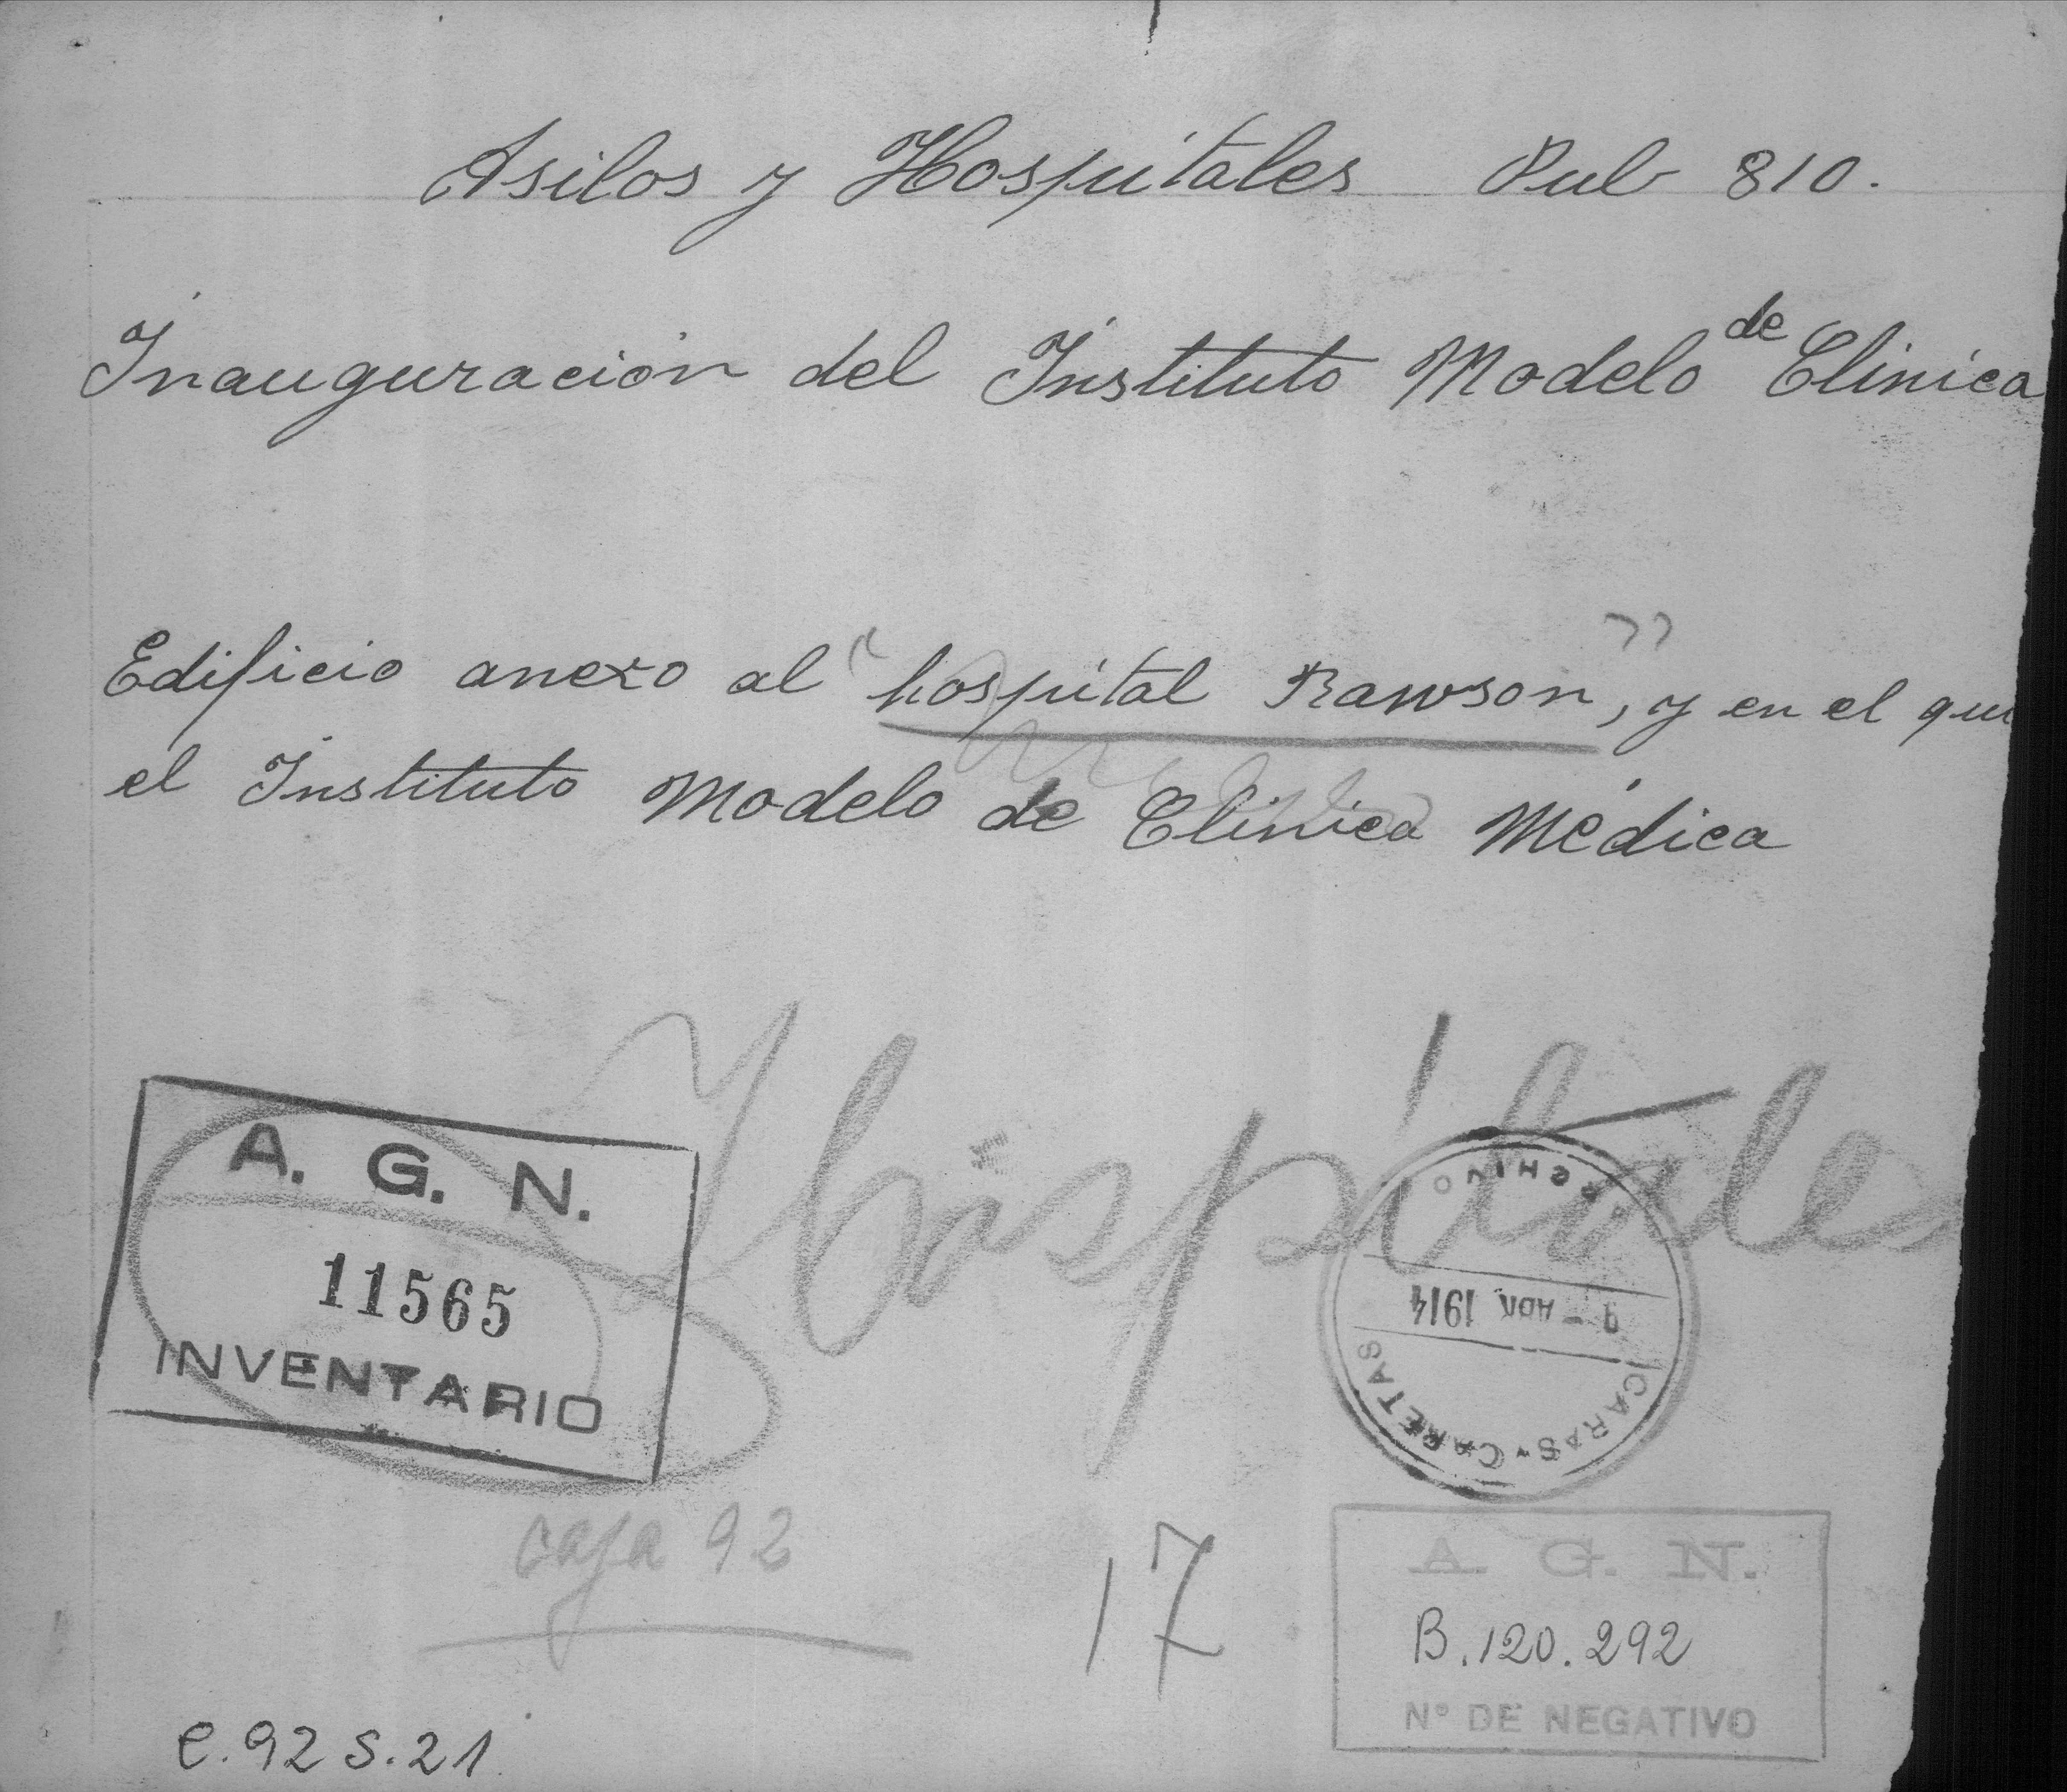 Asilos y Hospitales Pub 810.
Inauguración del Instituto Modelo de Clinica
Edificio anexo al "hospital Rawson", y en el que
el Instituto Modelo de Clinica Médica
Hospitales
A. G. N.
11565
INVENTARIO
ARCHIVO
9 - ABR 1914
CARAS y CARETAS
caja 92
17
A. G. N.
B.120.292
N° DE NEGATIVO
C.92 S.21